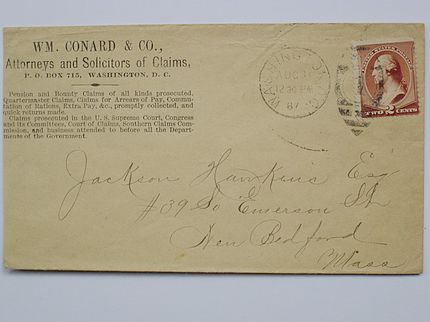 WM. CONARD & CO.,
Attorneys and Solicitors of Claims,
P. O. BOX 715, WASHINGTON, D. C.
Pension and Bounty Claims of all kinds prosecuted,
Quartermaster Claims, Claims for Arrears of Pay, Commu-
tation of Rations, Extra Pay, &c., promptly collected, and
quick returns made.
Claims prosecuted in the U. S. Supreme Court, Congress
and its Committees, Court of Claims, Southern Claims Com-
mission, and business attended to before all the Depart-
ments of the Government.
WASHINGTON
AUG
12 30 PM
87
TWO CENTS
Jackson Hawkins Esq
#39 So Emerson St
New Bedford
Mass